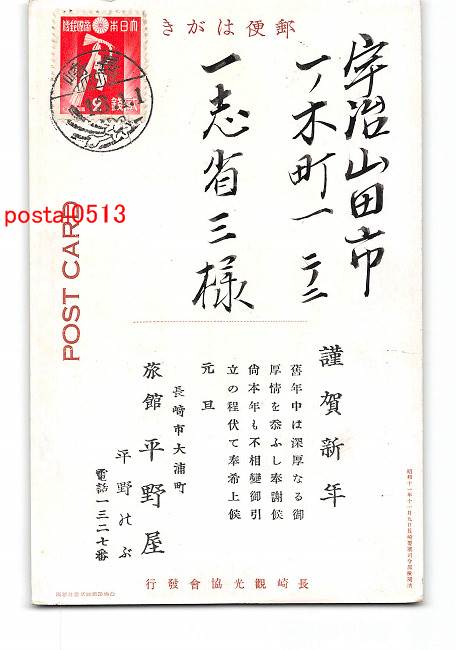 郵便はがき
大日本帝国郵便
貳錢
長崎
宇治山田市
一ノ木町一二二
一志省三様
postal0513
POST CARD
謹賀新年
舊年中は深厚なる御
厚情を忝ふし奉謝候
尚本年も不相變御引
立の程伏て奉希上候
元旦
長崎市大浦町
旅館 平野屋
平野のぶ
電話一三二七番
長崎觀光協會發行